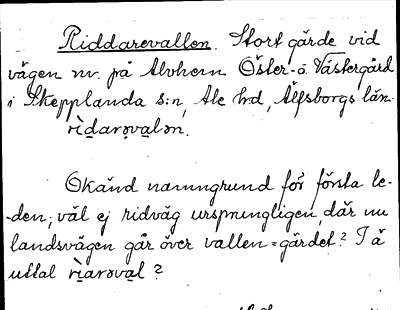 Riddarevallen. Stort gärde vid
vägen nv. på Alvhem Öster- o. Västergård
i Skepplanda s:n, Ale hd, Älfsborgs län.
rìdarəvalən.
Okänd namngrund för första le-
den; väl ej ridväg ursprungligen, där nu
landsvägen går över vallen = gärdet? Få
uttal rìarəval?